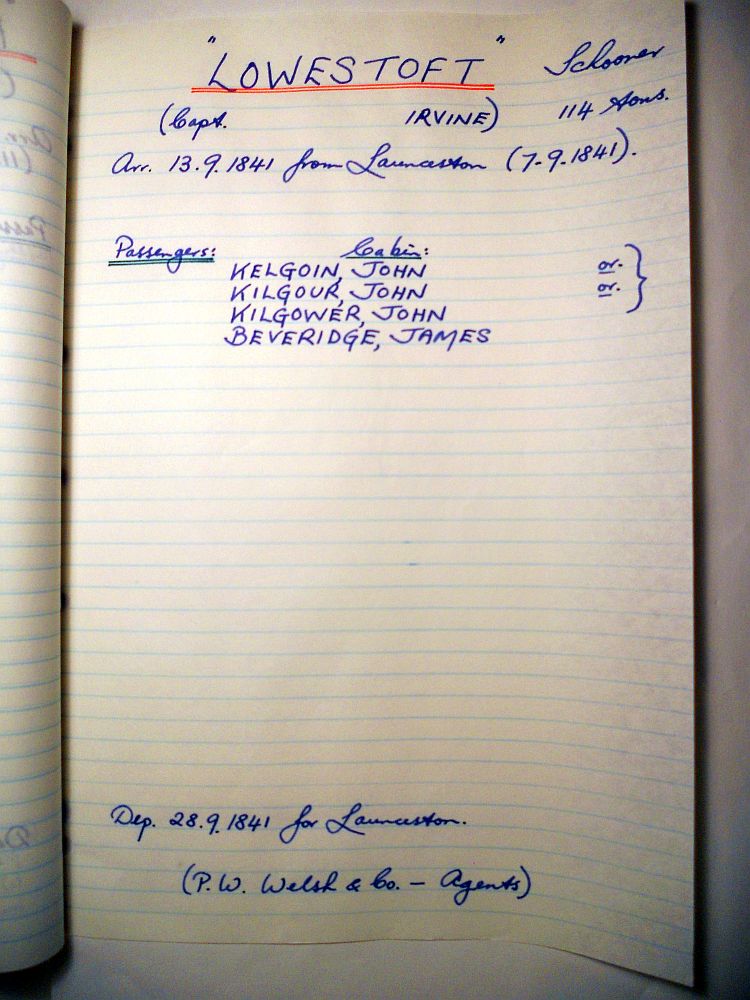 "LOWESTOFT" Schooner
(Capt. IRVINE) 114 tons.
Arr. 13.9.1841 from Launceston (7-9-1841).
Passengers: Cabin:
KELGOIN, JOHN or.
KILGOUR, JOHN or.
KILGOWER, JOHN
BEVERIDGE, JAMES
Dep. 28.9.1841 for Launceston.
(P.W. Welsh & Co. – Agents)